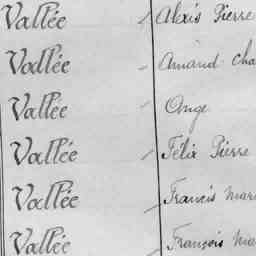 Vallée Alexis Pierre
Vallée Amand Cha
Vallée Ange
Vallée Félix Pierre
Vallée Francis Mari
Vallée François Ma